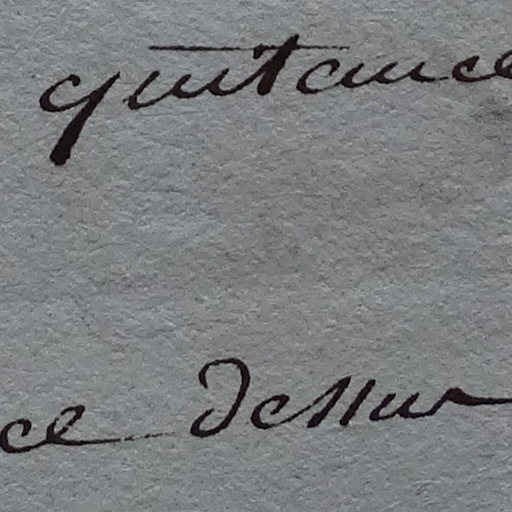 quitance
ce dessus